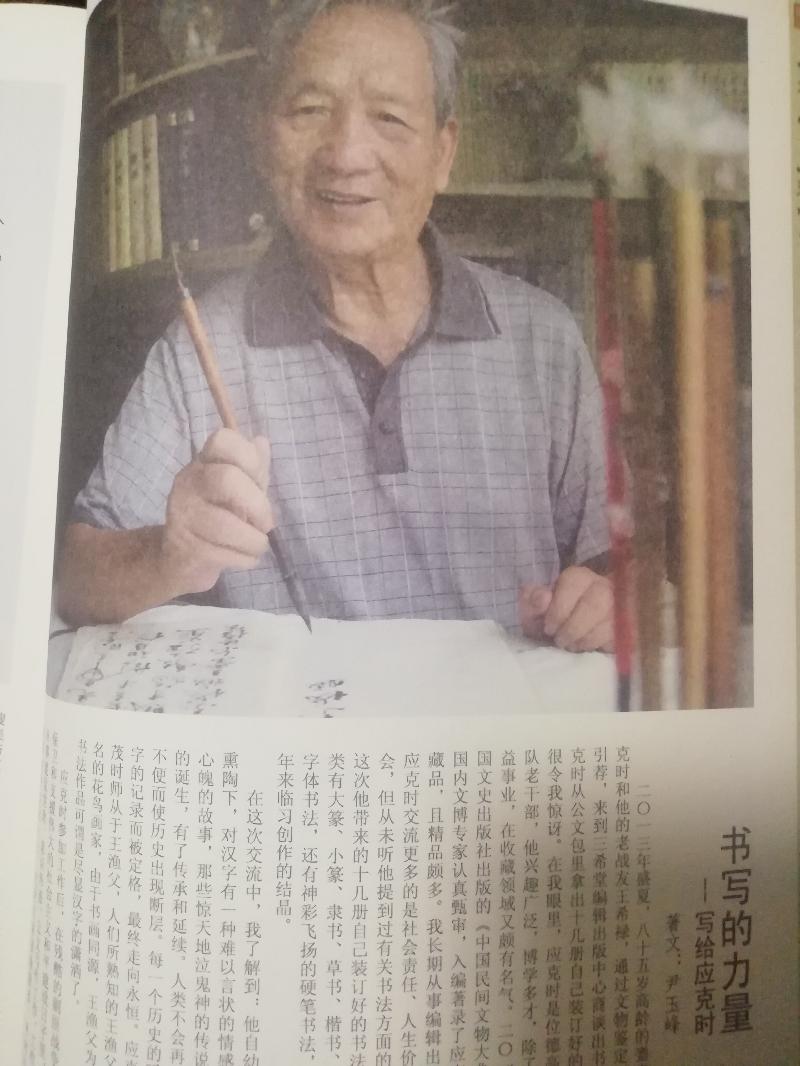 书写的力量
——写给应克时
著文：尹玉峰
二〇一三年盛夏，八十五岁高龄的
克时和他的老战友王希禄，通过文物鉴定
引荐，来到三希堂编辑出版中心商谈出书
克时从公文包里拿出十几册自己装订好的
很令我惊讶。在我眼里，应克时是位德高
队老干部，他兴趣广泛，博学多才，除了
益事业，在收藏领域又颇有名气。二〇
国文史出版社出版的《中国民间文物大
国内文博专家认真甄审，入编著录了应
藏品，且精品颇多。我长期从事编辑出
应克时交流更多的是社会责任、人生价
会，但从未听他提到过有关书法方面的
这次他带来的十几册自己装订好的书法
类有大篆、小篆、隶书、草书、楷书、
字体书法，还有神彩飞扬的硬笔书法，
年来临习创作的结晶。
在这次交流中，我了解到：他自幼
熏陶下，对汉字有一种难以言状的情感
心魄的故事，那些惊天地泣鬼神的传说
的诞生，有了传承和延续。人类不会再
不便而使历史出现断层。每一个历史的
字的记录而被定格，最终走向永恒。应
茂时师从于王渔父，人们所熟知的王渔父
名的花鸟画家，由于书画同源，王渔父为
书法作品可谓是尽显汉字的潇洒了。
应克时参加工作后，在残酷的解放战争